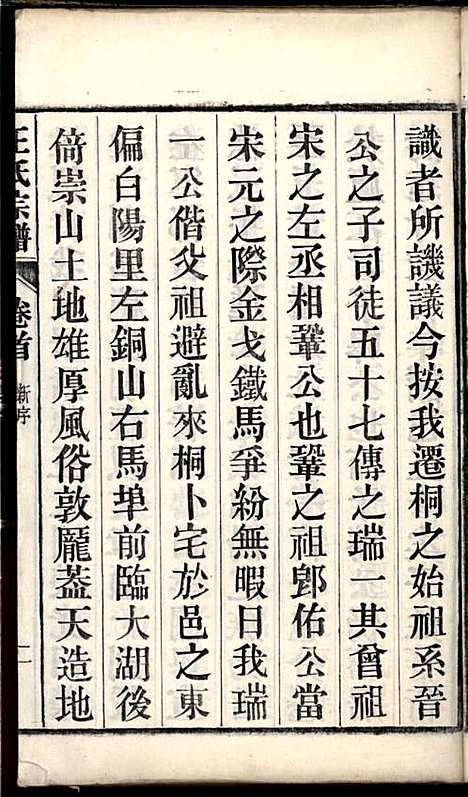 識者所譏議今按我遷桐之始祖系晉
公之子司徒五十七傳之瑞一其曾祖
宋之左丞相鞏公也鞏之祖郎佑公當
宋元之際金戈鐵馬爭紛無暇日我瑞
一公偕父祖避亂來桐卜宅於邑之東
偏白陽里左銅山右馬埠前臨大湖後
倚崇山土地雄厚風俗敦龐葢天造地
王氏宗譜
卷首
新序
二